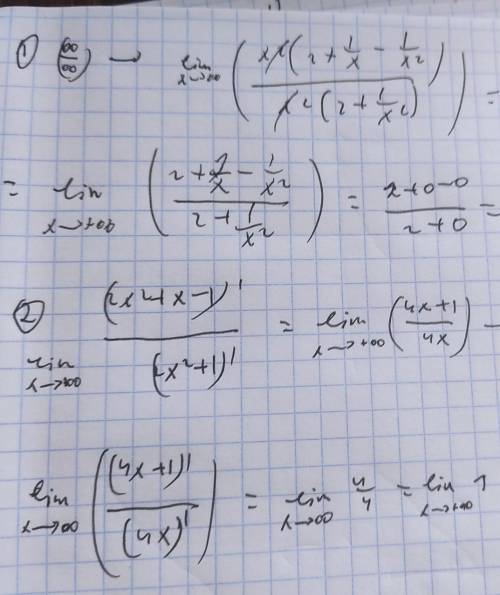 ① (∞/∞) → lim x→∞ (x²(2 + 1/x - 1/x²) / x²(2 + 1/x²)) =
= lim x→+∞ ((2 + 1/x - 1/x²) / (2 + 1/x²)) = (2+0-0)/(2+0) =
② lim x→+∞ (2x²+x-1)' / (2x²+1)' = lim x→+∞ ((4x+1)/4x) -
lim x→∞ ((4x+1)' / (4x)') = lim x→∞ 4/4 = lim x→+∞ 1